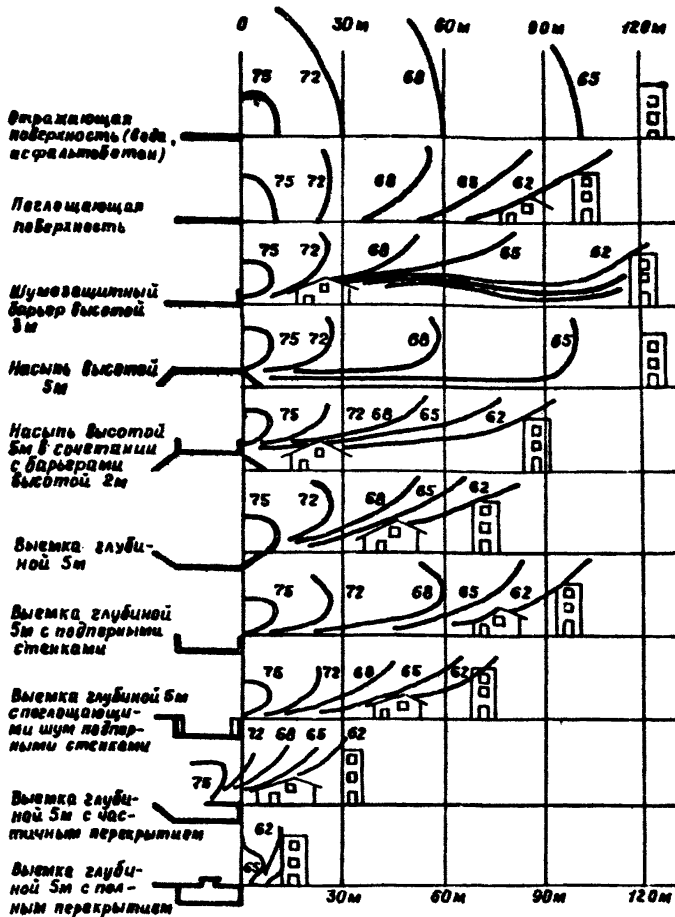 0 30м 60м 90м 120м
75 72 68 65
Отражающая
поверхность (вода,
асфальтобетон)
75 72 68 65 62
Поглощающая
поверхность
75 72 68 65 62
Шумозащитный
барьер высотой
3м
75 72 68 65
Насыпь высотой
5м
75 72 68 65 62
Насыпь высотой
5м в сочетании
с барьерами
высотой 2м
75 72 68 65 62
Выемка глуби-
ной 5м
75 72 68 65 62
Выемка глубиной
5м с подпорными
стенками
75 72 68 65 62
Выемка глубиной 5м
с поглощающи-
ми шум подпор-
ными стенками
72 68 65 62
75
Выемка глуби-
ной 5м с час-
тичным перекрытием
62
65
Выемка глуби-
ной 5м с пол-
ным перекрытием
30м 60м 90м 120м